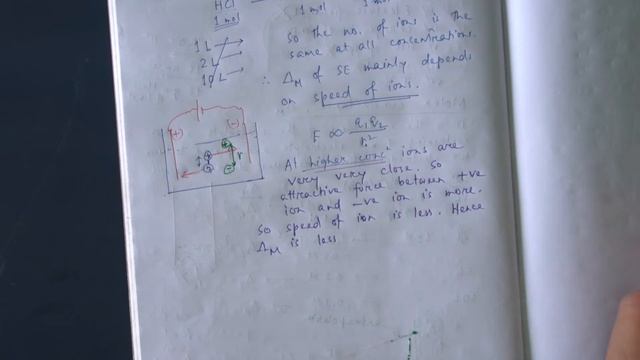 HCl
1 mol
1 mol 1 mol
1 L
2 L
10 L
So the no. of ions is the
same at all concentrations.
∴ ΛM of SE mainly depends
on speed of ions.
F ∝ q1q2
r²
At higher concⁿ ions are
very very close. So
attractive force between +ve
ion and -ve ion is more.
So speed of ion is less. Hence
ΛM is less
(+)
(-)
+
+
-
-
r